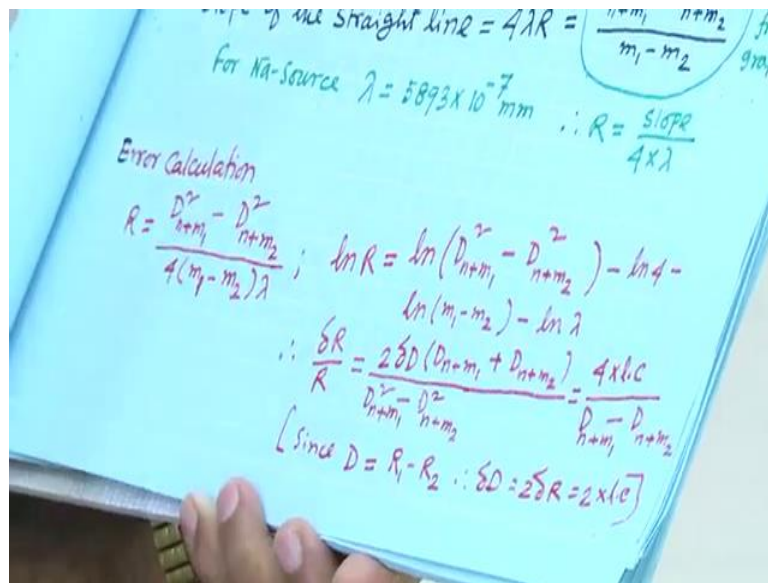 of the straight line = 4λR = (D²n+m₁ - D²n+m₂) / (m₁ - m₂)
For Na-Source λ = 5893 × 10⁻⁷ mm ∴ R = slope / (4×λ)
Error Calculation
R = (D²n+m₁ - D²n+m₂) / (4(m₁ - m₂)λ) ; ln R = ln(D²n+m₁ - D²n+m₂) - ln 4 -
ln(m₁ - m₂) - ln λ
∴ δR/R = 2δD(Dn+m₁ + Dn+m₂) / (D²n+m₁ - D²n+m₂) = 4×l.c / (Dn+m₁ - Dn+m₂)
[Since D = R₁ - R₂ ∴ δD = 2δR = 2×l.c]